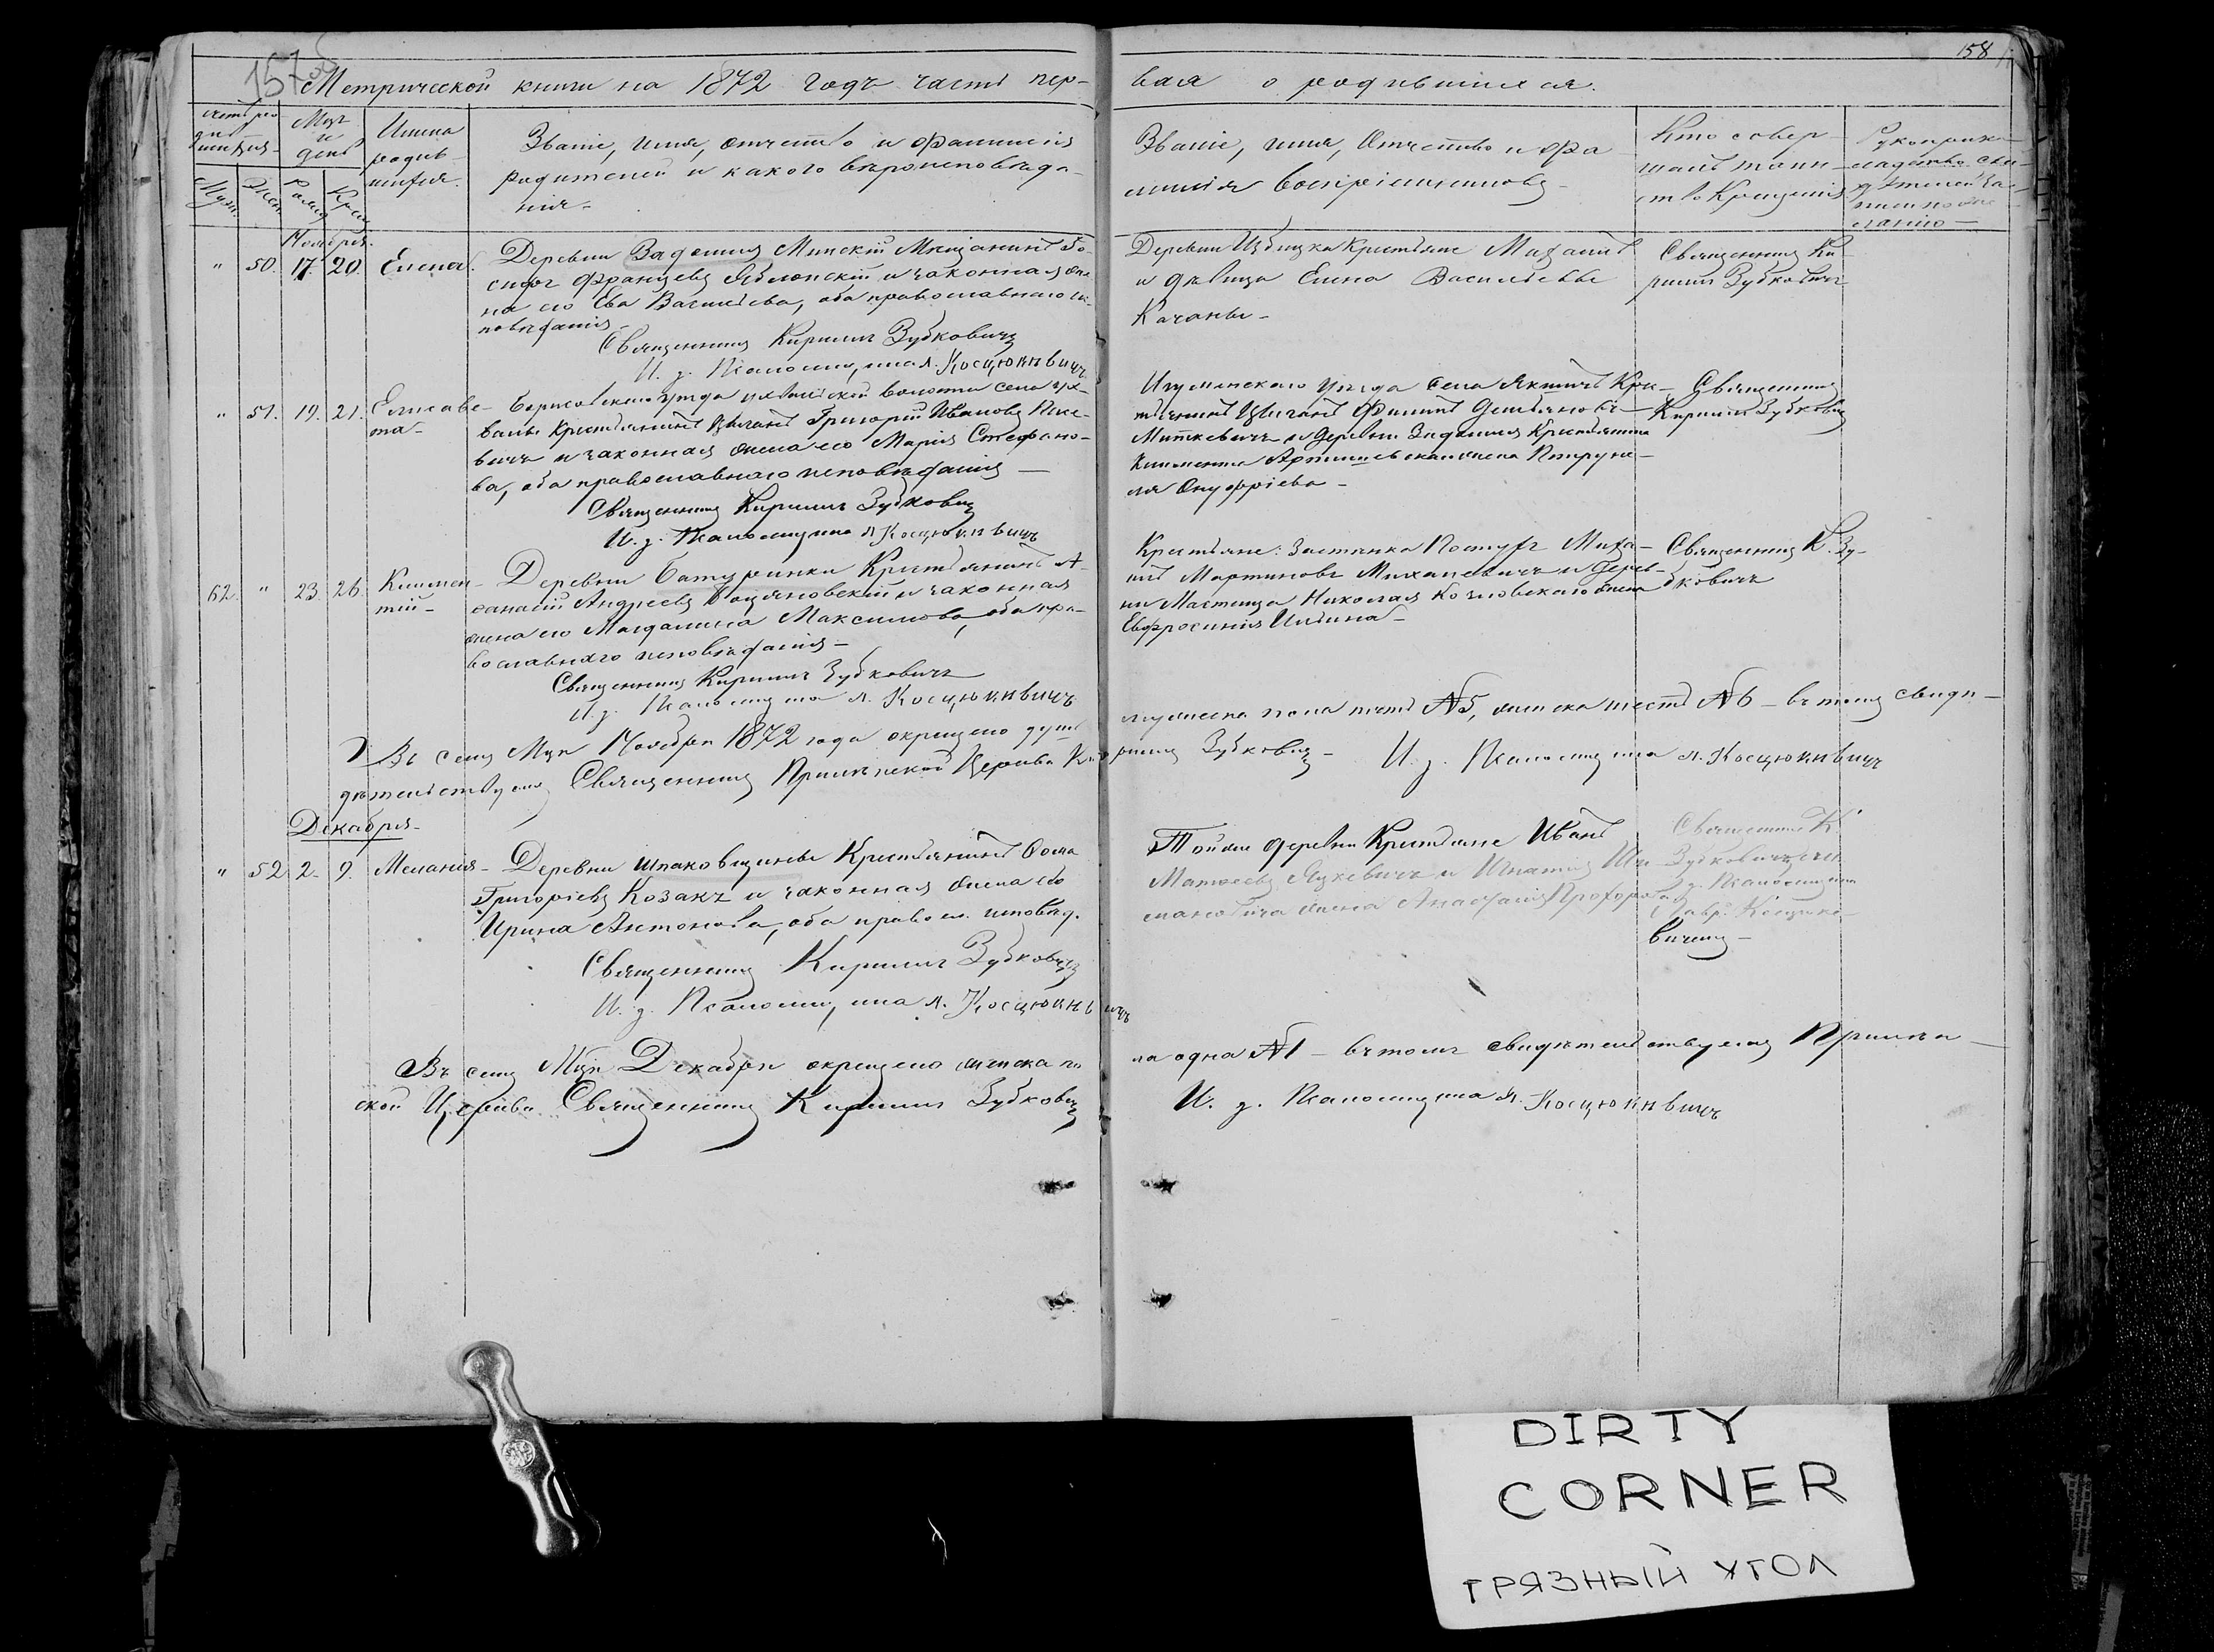 157об
158
Метрической книги на 1872 годъ часть пер-
вая о родившихся.
Счетъ ро-
дившихся
Муж.
Жен.
Мцъ
и
день
Рожд.
Крещ.
Имена
родив-
шихся.
Званіе, имя, отчество и фамилія
родителей и какого вѣроисповѣда-
нія-
Званіе, имя, отчество и фа
милія воспріемниковъ-
Кто совер-
шалъ таин-
ство Крещенія
Рукоприк-
ладство сви-
дѣтелей за-
писи по же
ланію-
Ноября.
" 50. 17. 20. Елена.
Деревни Минскій Мѣщанинъ Іо-
сифъ Францевъ Яблонскій и законная же
на его Ева Васильева, оба православнаго ис-
повѣданія-
Священникъ Кириллъ Зубковичъ
И. д. Псаломщика Л. Косцюкевичъ
Деревни Крестьяне Михаилъ
и дѣвица Елена Васильевы
Качаны-
Священникъ Ки-
риллъ Зубковичъ
" 51. 19. 21. Елисаве-
та-
Борисовскаго уѣзда волости села
Крестьянинъ Цыганъ Григорій Ивановъ
вичъ и законная жена его Марія Стефано-
ва, оба православнаго исповѣданія-
Священникъ Кириллъ Зубковичъ
И. д. Псаломщика Л. Косцюкевичъ
Игуменскаго уѣзда села Якшичъ Кре-
стьянинъ Цыганъ Филиппъ Демьяновъ-
Миткевичъ и деревни Крестьянина
Климента жена Петруне-
ля Онуфріева-
Священникъ
Кириллъ Зубковичъ
62. " 23. 26. Климен-
тій-
Деревни Батуринки Крестьянинъ А-
ѳанасій Андреевъ и законная
жена его Магдалина Максимова, оба пра-
вославнаго исповѣданія-
Священникъ Кириллъ Зубковичъ
И. д. Псаломщика Л. Косцюкевичъ
Крестьяне: Застѣнка Миха-
илъ Мартиновъ Михалевичъ и дерев-
ни Мастища Николая Козловскаго жена
Евфросинія Ильина-
Священникъ К. Зу-
бковичъ
Въ семъ Мцѣ Ноябрѣ 1872 года окрещено душъ
мужеска пола пять №5, женска шесть №6 - въ томъ свидѣ-
дѣтельствуемъ Священникъ Церкви Ки-
риллъ Зубковичъ- И. д. Псаломщика Л. Косцюкевичъ
Декабря-
" 52. 2. 9. Меланія-
Деревни Шпаковщины Крестьянинъ Ѳома
Григорьевъ Козакъ и законная жена его
Ирина Антонова, оба правосл. исповѣд.
Священникъ Кириллъ Зубковичъ
И. д. Псаломщика Л. Косцюкевичъ
Той же деревни Крестьяне Иванъ
Матѳеевъ Яцкевичъ и Игнатія Ши-
мановича жена Анастасія Прохорова
Священникъ К.
Зубковичъ
д. Псаломщика
Лавр. Косцюке-
вичемъ-
Въ семъ Мцѣ Декабрѣ окрещено женска по
ла одна №1 - въ томъ свидѣтельствуемъ
ской Церкви Священникъ Кириллъ Зубковичъ
И. д. Псаломщика Л. Косцюкевичъ
DIRTY
CORNER
ГРЯЗНЫЙ УГОЛ